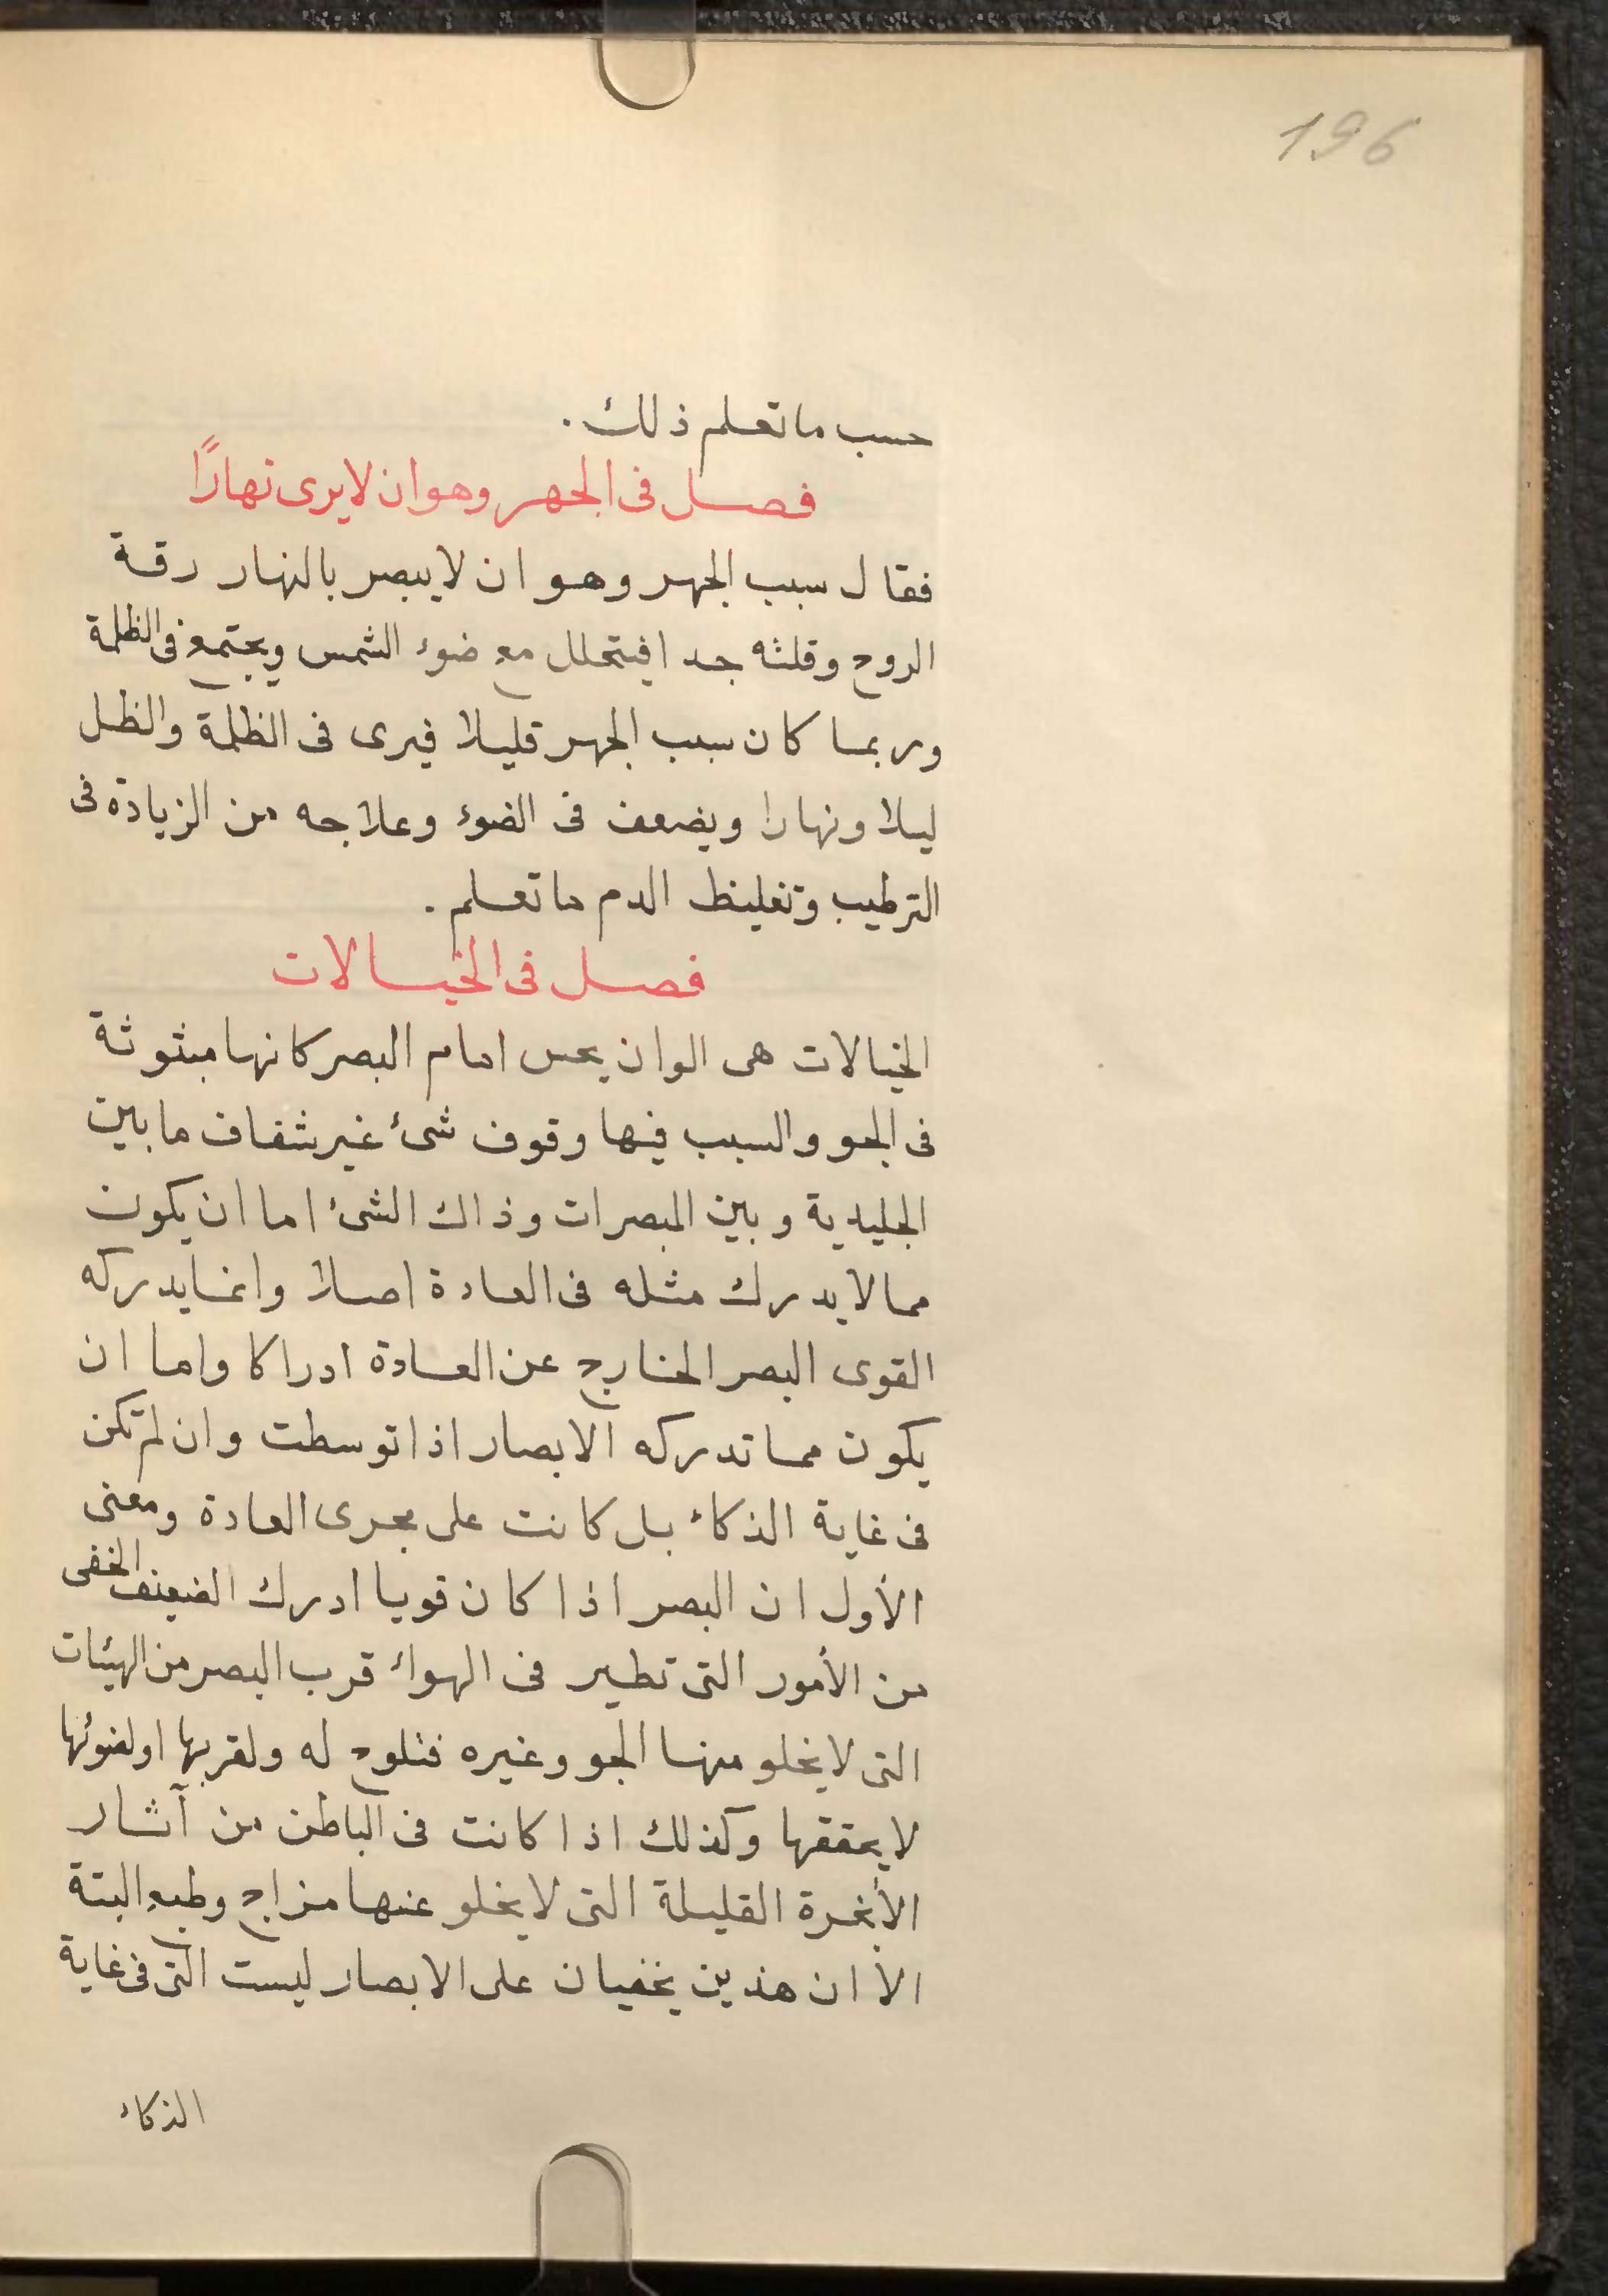 196
حسب ما تعلم ذلك.
فصل فى الجهر وهو ان لا يرى نهارًا
فقال سبب الجهر وهو ان لا يبصر بالنهار رقة
الروح وقلته جدا فيتحلل مع ضوء الشمس ويجتمع فى الظلمة
وربما كان سبب الجهر قليلا فيرى فى الظلمة والظل
ليلا ونهارا ويضعف فى الضوء وعلاجه من الزيادة فى
الترطيب وتغليظ الدم ما تعلم.
فصل فى الخيالات
الخيالات هى الوان يحس امام البصر كانها مبثوثة
فى الجو والسبب فيها وقوف شىء غير شفاف ما بين
الجليدية وبين المبصرات وذاك الشىء اما ان يكون
مما لا يدرك مثله فى العادة اصلا وانما يدركه
القوى البصر الخارج عن العادة ادراكا واما ان
يكون مما تدركه الابصار اذا توسطت وان لم تكن
فى غاية الذكاء بل كانت على مجرى العادة ومعنى
الأول ان البصر اذا كان قويا ادرك الضعيف الخفى
من الأمور التى تطير فى الهواء قرب البصر من الهيئات
التى لا يخلو منها الجو وغيره فتلوح له ولقربها او لضوئها
لا يحققها وكذلك اذا كانت فى الباطن من آثار
الأبخرة القليلة التى لا يخلو عنها مزاج وطبع البتة
الا ان هذين يخفيان على الابصار ليست التى فى غاية
الذكاء